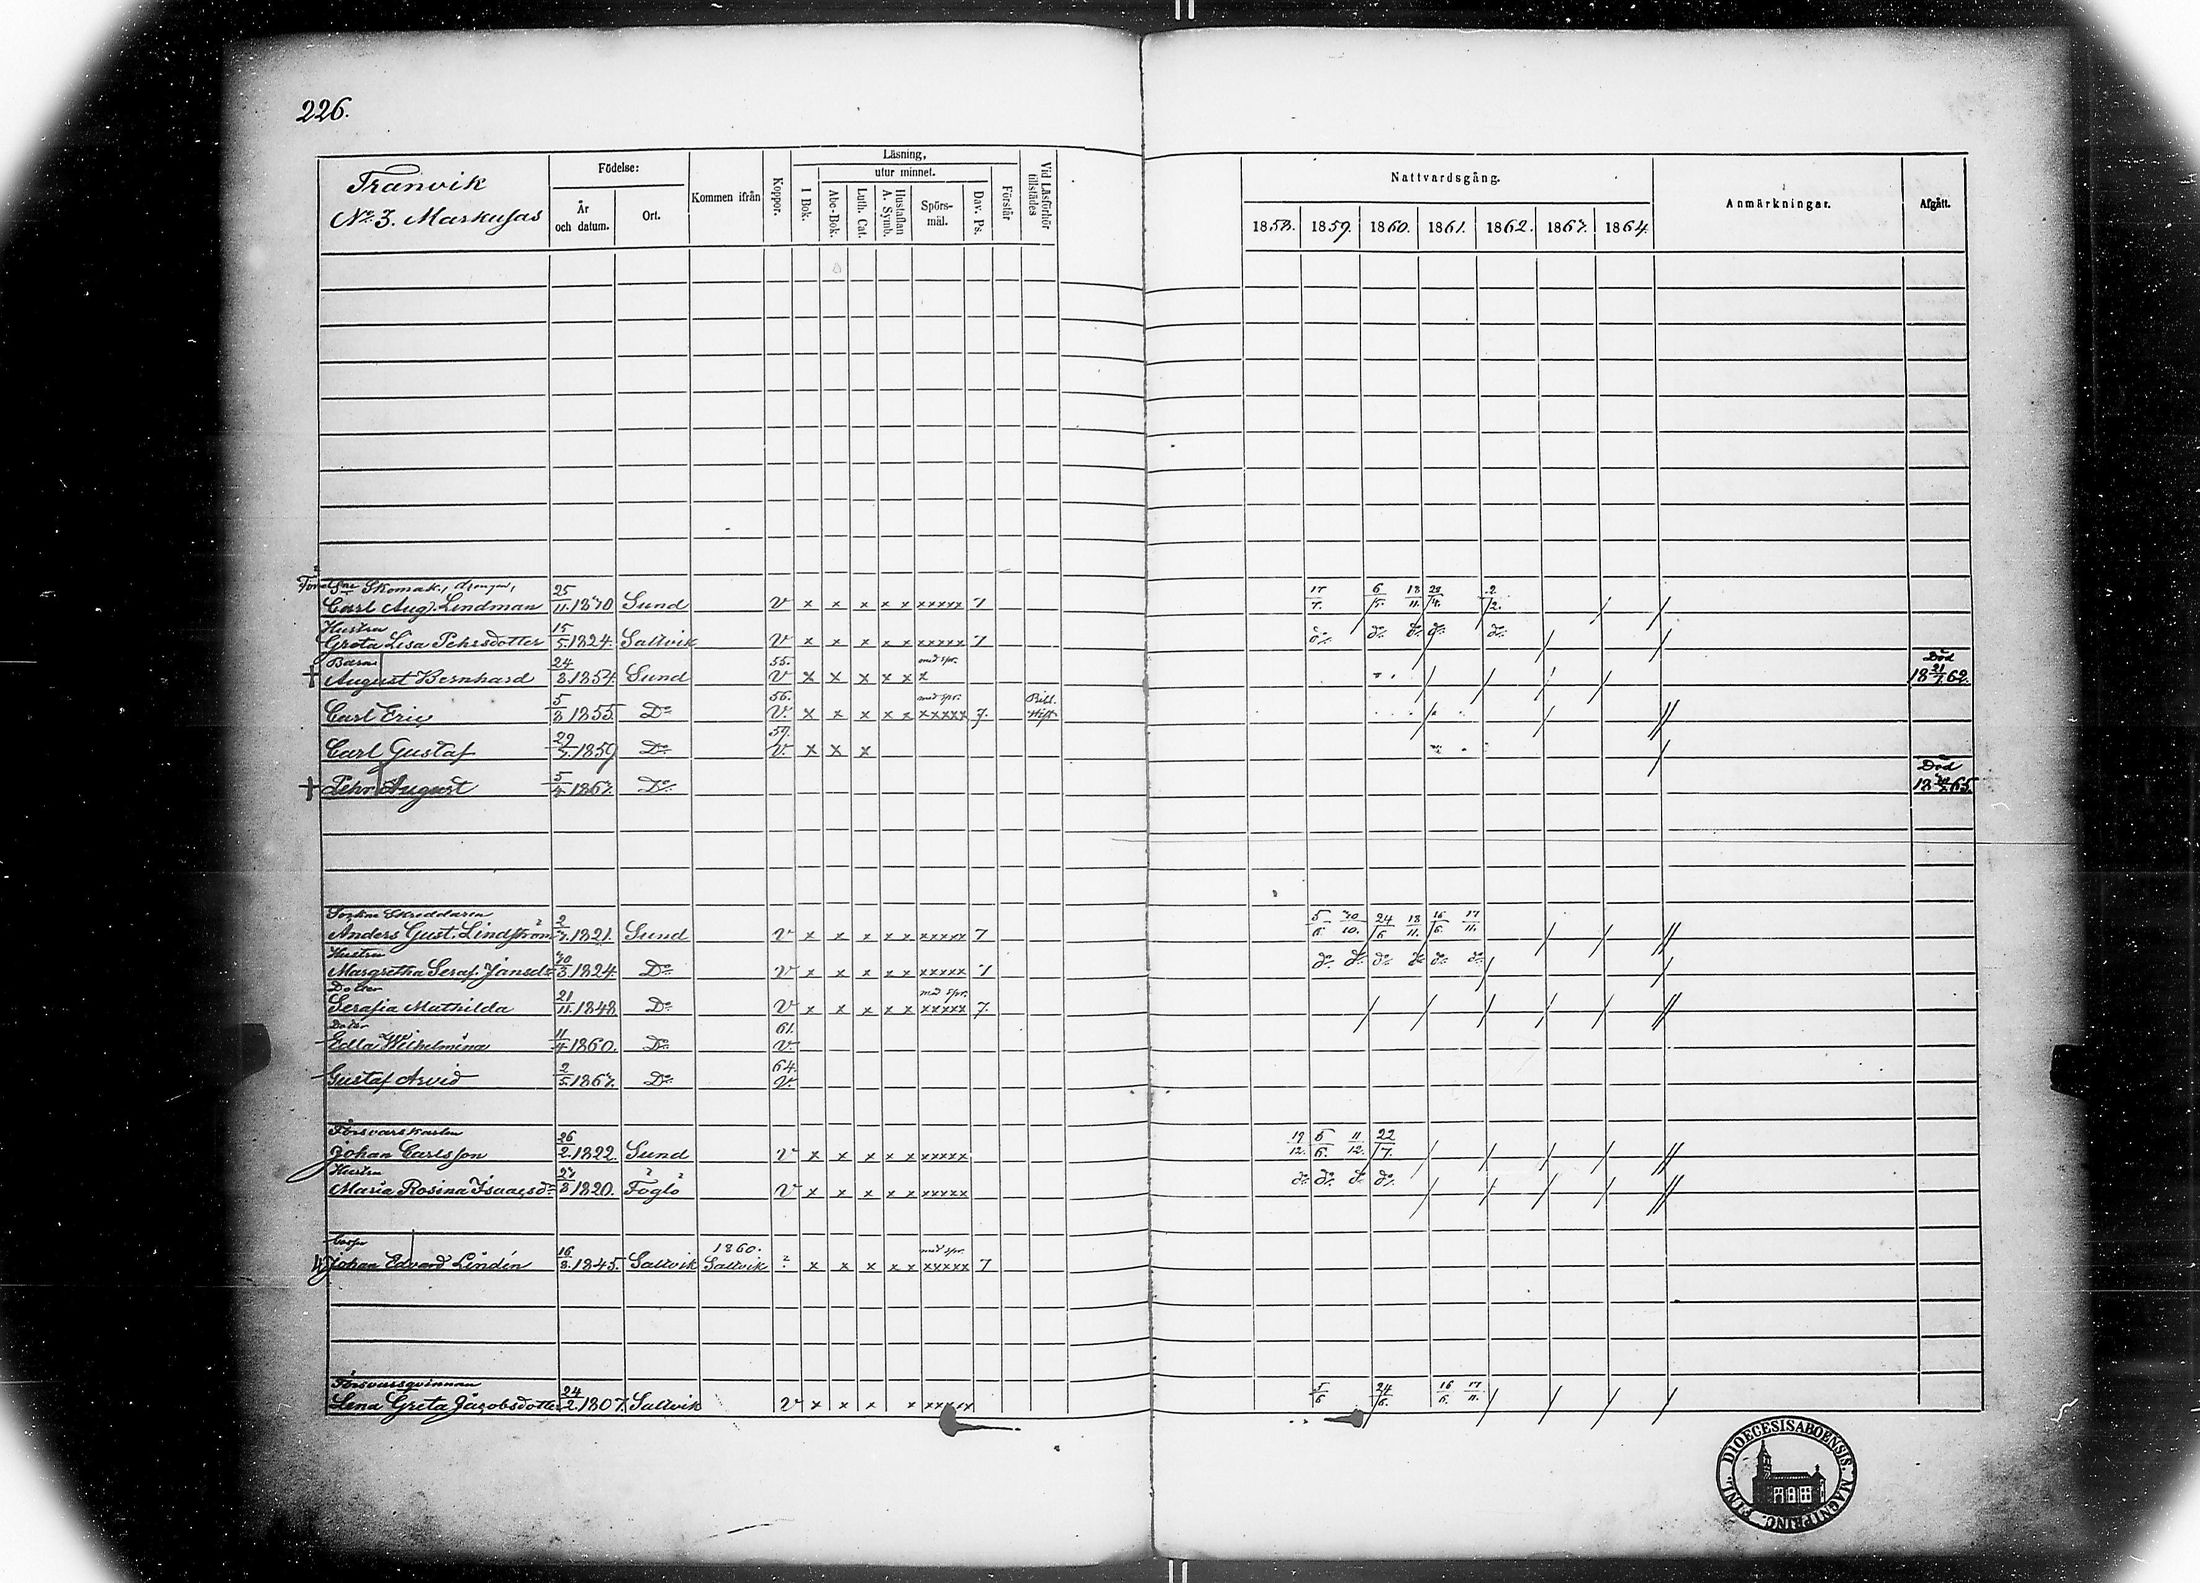 226.
Tranvik
No 3. Markusas
Födelse:
År och datum.
Ort.
Kommen ifrån
Koppor.
Läsning,
utur minnet.
I Bok.
Abc-Bok.
Luth. Cat.
Hustaflan A. Symb.
Spörs-mål.
Dav. Ps.
Förstår
Vid Läsförhör tillstädes
Nattvardsgång.
1858. 1859. 1860. 1861. 1862. 1863. 1864.
Anmärkningar.
Afgått.
Skomak.
Carl Aug. Lindman 25/11.1830 Sund v x x x x x xxxxx 7 17/7. 6/5. 18/11.
Hustru
Greta Lisa Pehrsdotter 15/5.1824. Saltvik v x x x x x xxxxx 7 do do do do do
Barn
August Bernhard 24/3.1854. Sund 55. v med spr. x x x x x x Död 18 21/7 62.
Carl Eric 5/3 1855. Do 56. v. med spr. x x x x x xxxxx 7.
Carl Gustaf 29/3.1859 Do 59. v. x x x
Pehr August 5/4 1863. Do Död 65.
Anders Gust. Lindström 2/3.1821. Sund v x x x x x xxxxx 7 5/6 30/10. 24/6 18/11. 16/6. 17/11.
Hustru
Margretha Seraf. Jansdr 30/3.1824. Do v x x x x x xxxxx 7 do do do do do do
Dotter
Serafia Mathilda 21/11.1848 Do v med spr. x x x x x xxxxx 7.
Doter
Edla Wilhelmina 11/4 1860. Do 61. v.
Gustaf Arvid 2/5.1863. Do 64. v.
Försvarskarlen
Johan Carlsson 26/2.1822. Sund v x x x x x xxxxx 19/12. 5/6. 11/12. 22/7.
Hustru
Maria Rosina Isaacsdr 1820. Föglö v x x x x x xxxxx do do do do
Johan Edvard Lindén 16/3.1845. Saltvik 1860. Saltvik ? med spr. x x x x x xxxxx 7
Försvarsqvinnan
Lena Greta Jacobsdotter 24/2.1807. Saltvik v x x x x xxxxx 5/6 24/6. 16/6. 17/11.
DIOECESIS ABOENSIS. MAGNI PRINC. FINL.